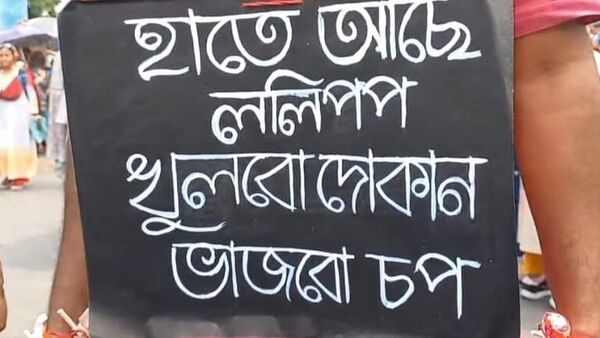 হাতে আছে
ললিপপ
খুলবো দোকান
ভাজবো চপ